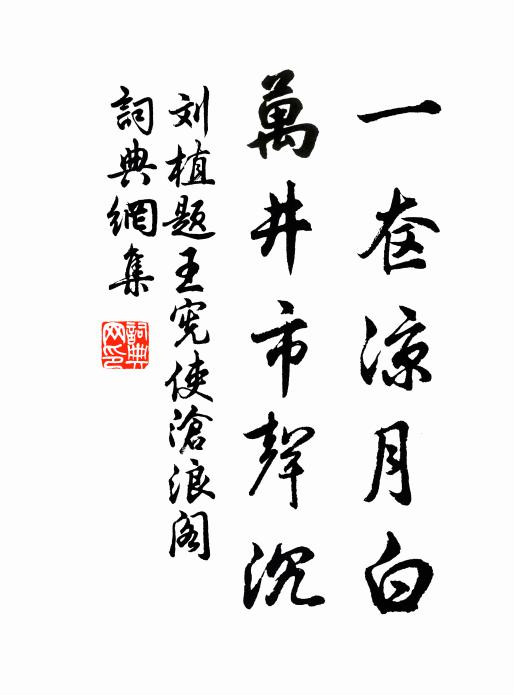 一奁涼月白
萬井市聲沉
刘植题王宪使滄浪阁
詞典網集
詞典网印